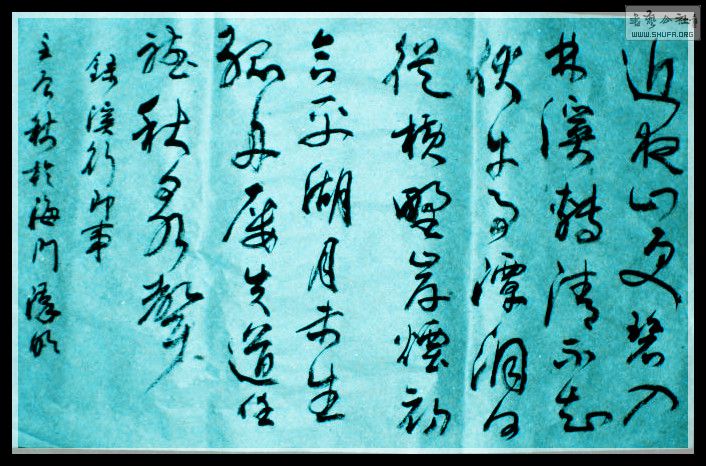 書藝公社
WWW.SHUFA.ORG
近夜山更碧入
林溪轉清不知
伏牛事潭洞何
從橫野岸煙初
合平湖月未生
孤舟屢失道但
聽秋泉聲
錄溪行即事
秋於海門